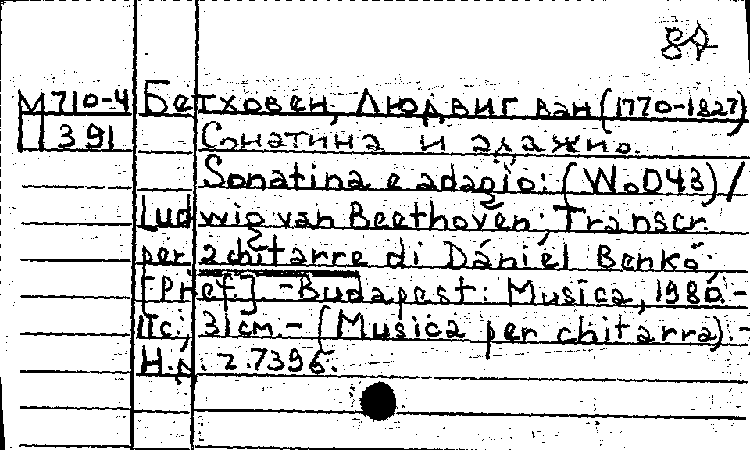 87
М710-4 Бетховен, Людвиг ван (1770-1827)
П391 Сонатина и адажио.
Sonatina e adagio: (WoO43) /
Ludwig van Beethoven; Transcr.
per 2 chitarre di Dániel Benkő;
[Pref.] - Budapest: Musica, 1986. -
11с.; 31см. - (Musica per chitarra). -
Н.д. Z.7396.